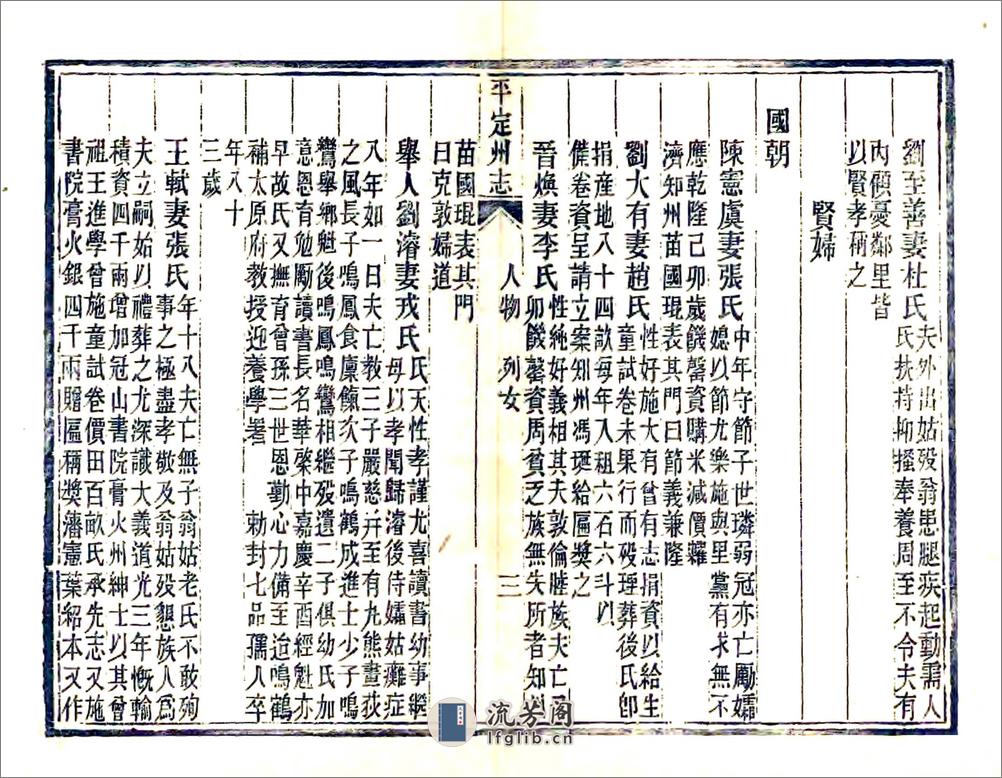 劉至善妻杜氏夫外出姑殁翁患腿疾起動需人
氏扶持抑搔奉養周至不令夫有
內顧憂鄰里皆
以賢孝稱之
賢婦
國朝
陳憲虞妻張氏中年守節子世璘弱冠亦亡勵孀
媳以節尤樂施與里黨有求無不
應乾隆己卯歲饑罄資購米減價糶
濟知州苗國琨表其門曰節義兼隆
劉大有妻趙氏性好施大有曾有志捐資以給生
童試卷未果行而殁理葬後氏卽
捐産地八十四畝每年入租六石六斗以
備卷資呈請立案知州馮珽給匾獎之
晉煥妻李氏性純好義相其夫敦倫睦族夫亡己
卯饑罄資周貧乏族無失所者知州
平定州志
人物 列女
三
苗國琨表其門
曰克敦婦道
舉人劉濬妻戎氏氏天性孝謹尤喜讀書幼事繼
母以孝聞歸濬後侍孀姑癱症
八年如一日夫亡教三子嚴慈幷至有九熊畫荻
之風長子鳴鳳食廩餼次子鳴鶴成進士少子鳴
鸞舉鄉魁後鳴鳳鳴鸞相繼殁遺二子俱幼氏加
意恩育勉勵讀書長名華棨中嘉慶辛酉經魁亦
早故氏又撫育曾孫三世恩勤心力備至迨鳴鶴
補太原府教授迎養學署 勅封七品孺人卒
年八十
三歲
王軾妻張氏年十八夫亡無子翁姑老氏不敢殉
事之極盡孝敬及翁姑殁懇族人爲
夫立嗣始以禮葬之尤深識大義道光三年慨輸
積資四千兩增加冠山書院膏火州紳士以其曾
祖王進學曾施童試卷價田百畝氏承先志又施
書院膏火銀四千兩贈匾稱獎藩憲葉紹本又作
流芳阁
lfglib.cn